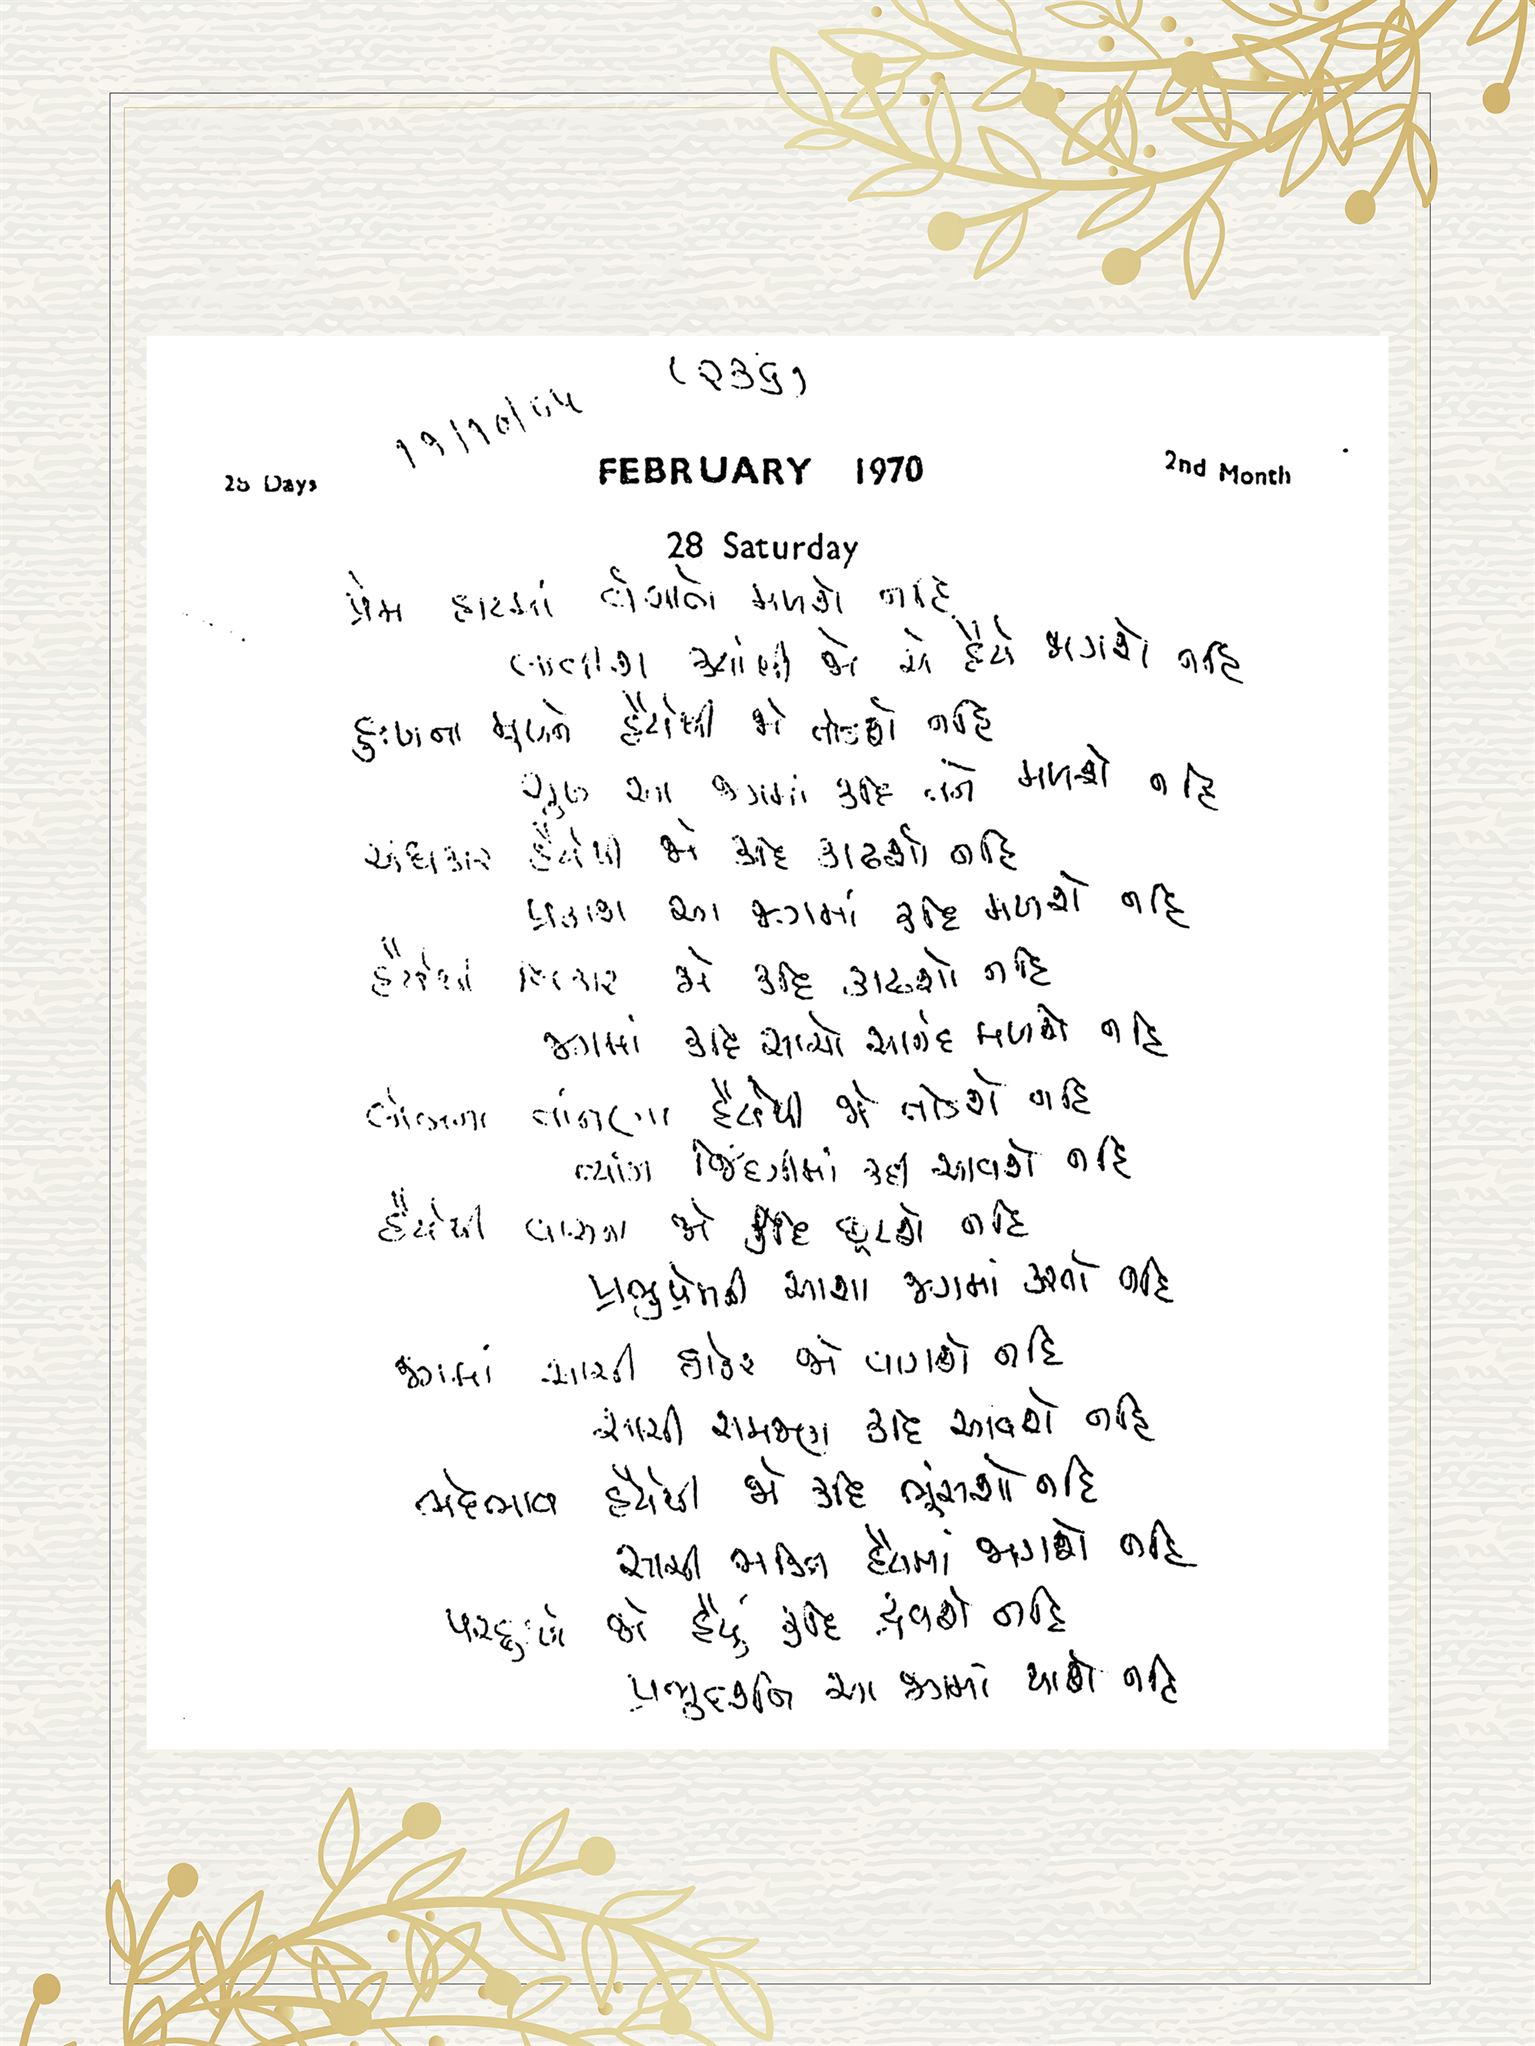 (૨૩૬)
૧૧/૧૦/૮૫
28 Days FEBRUARY 1970 2nd Month
28 Saturday
પ્રેમ હાટમાં વેચાતો મળશે નહિ
ક્યાંથી જો એ હૈયે જાગશે નહિ
દુઃખના મૂળને હૈયેથી જો તોડશો નહિ
સુખ આ જગમાં કદિ તને મળશે નહિ
અંધકાર હૈયેથી જો કદિ કાઢશો નહિ
પ્રકાશ આ જગમાં કદિ મળશે નહિ
હૈયેથી જો કદિ કાઢશો નહિ
જગમાં કદિ સાચો આનંદ મળશે નહિ
લોભના તાંતણા હૈયેથી જો તોડશો નહિ
ત્યાગ જિંદગીમાં કદી આવશે નહિ
હૈયેથી વાસના જો કદિ છૂટશે નહિ
પ્રભુપ્રેમની આશા જગમાં કરતો નહિ
જગમાં સારની ઠોકર જો વાગશે નહિ
સાચી સમજણ કદિ આવશે નહિ
ભેદભાવ હૈયેથી જો કદિ ભૂંસાશે નહિ
સાચી ભક્તિ હૈયામાં જાગશે નહિ
પરદુઃખે જો હૈયું કદિ દ્રવશે નહિ
પ્રભુદર્શન આ જગમાં થાશે નહિ